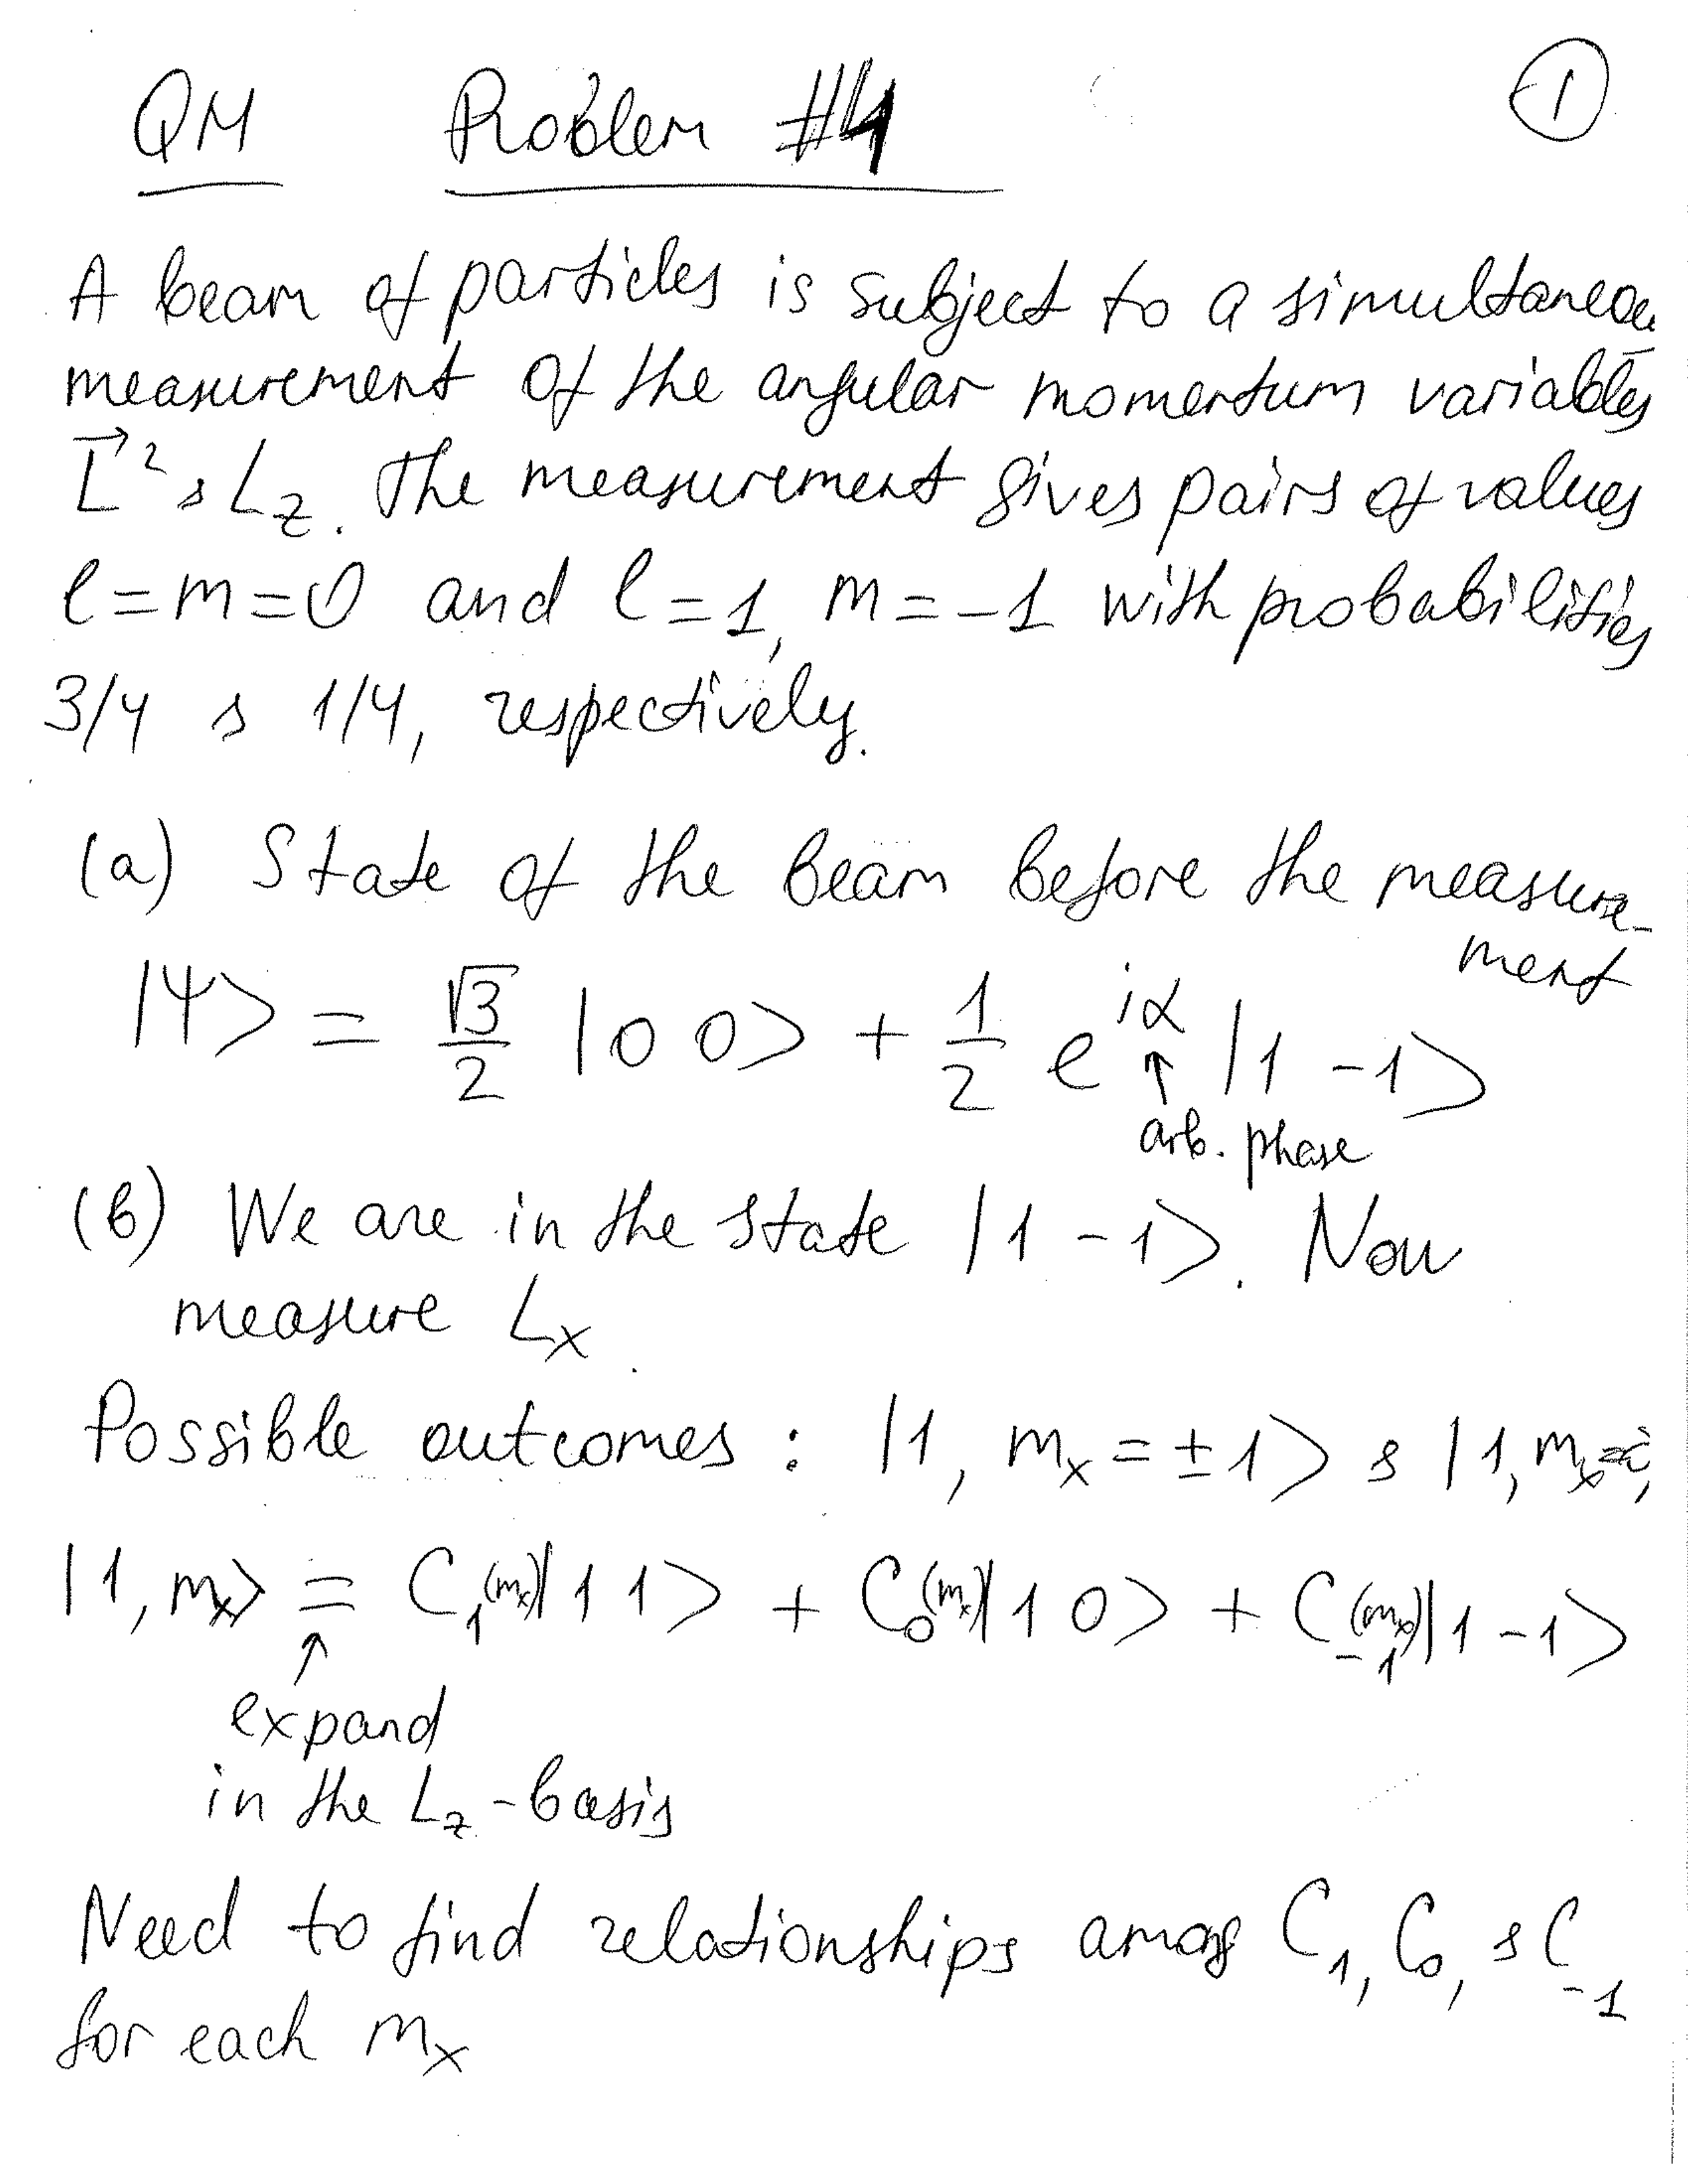 QM Problem #4 ①
A beam of particles is subject to a simultaneou
measurement of the angular momentum variables
L⃗², L_z. The measurement gives pairs of values
l=m=0 and l=1, m=-1 with probabilities
3/4 & 1/4, respectively.
(a) State of the beam before the measure-
ment
|Ψ> = √3/2 |0 0> + 1/2 e^{iα} |1 -1>
↑
arb. phase
(b) We are in the state |1 -1>. Now
measure L_x
Possible outcomes : |1, m_x = ±1> & |1, m_x=
|1, m_x> = C_1^{(m_x)}|1 1> + C_0^{(m_x)}|1 0> + C_{-1}^{(m_x)}|1 -1>
↑
expand
in the L_z-basis
Need to find relationships among C_1, C_0, & C_{-1}
for each m_x